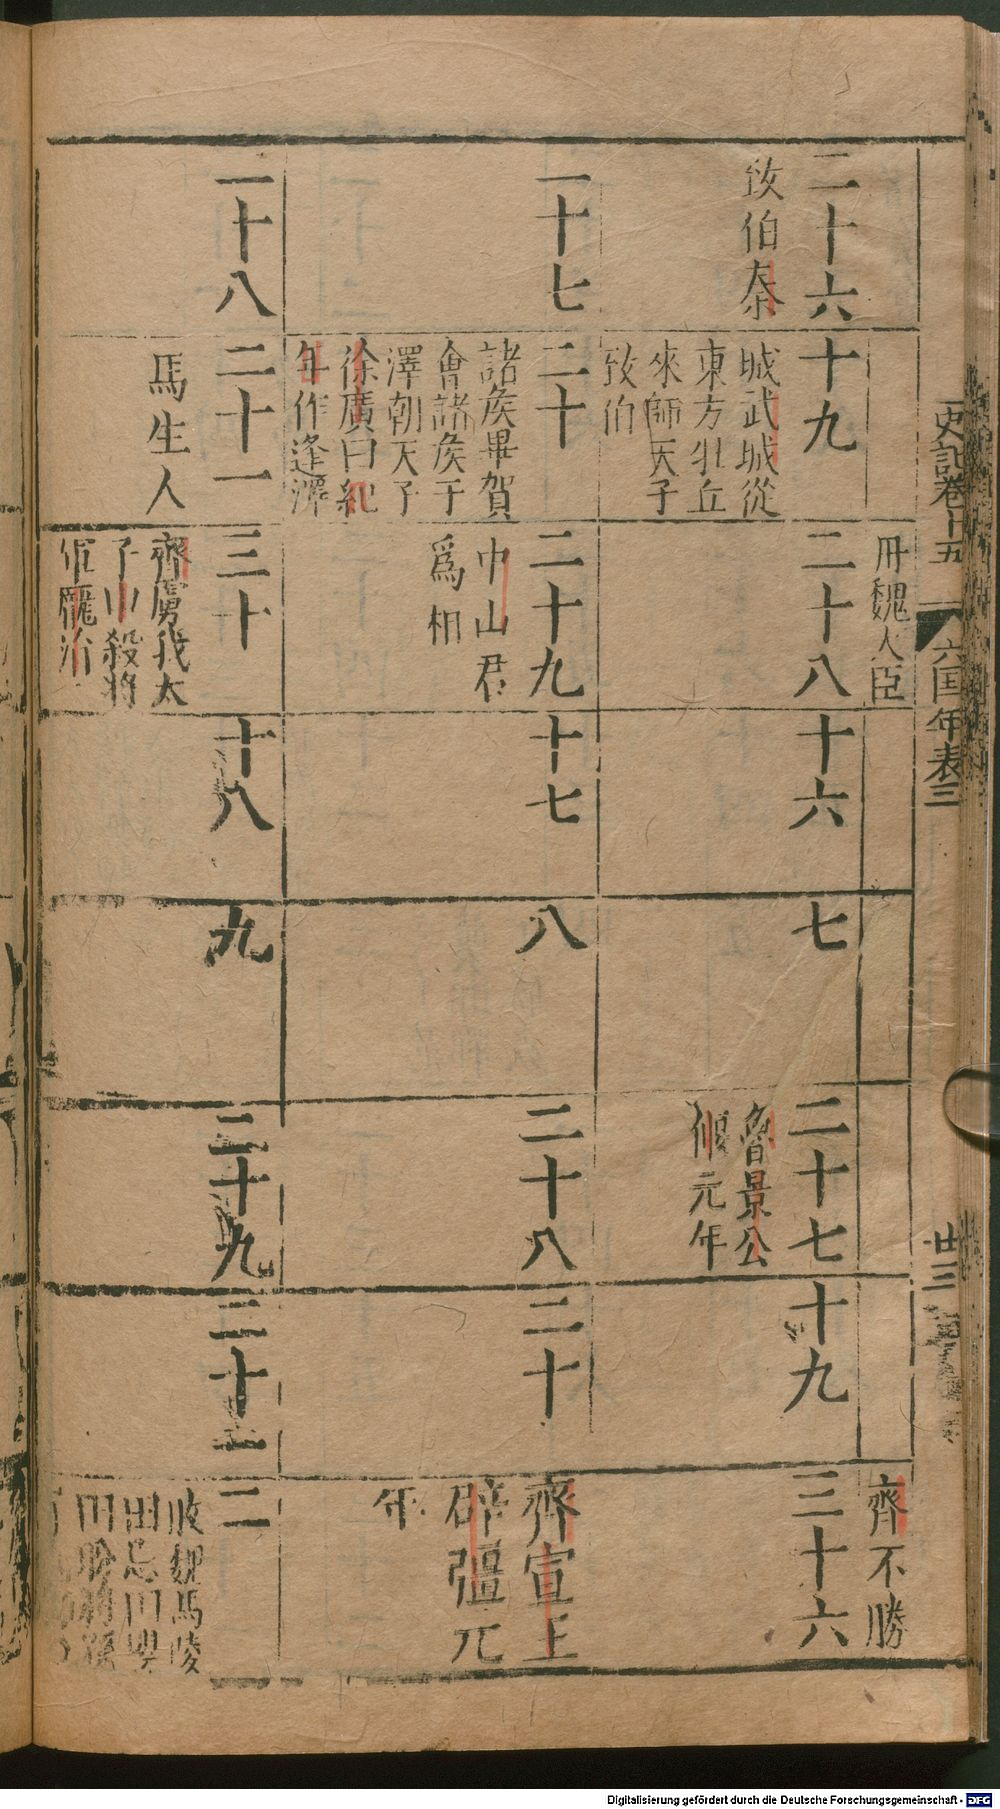 史記卷十五
六国年表三
廿三
冊魏大臣
齊不勝
二十六
致伯秦
十九
城武城從
東方壯丘
來歸天子
致伯
二十八
十六
七
二十七
魯景公
偃元年
十九
三十六
一十七
二十
諸侯畢賀
會諸侯于
澤朝天子
徐廣曰紀
年作逢澤
二十九
中山君
爲相
十七
八
二十八
二十
齊宣王
辟彊元
年
一十八
二十一
馬生人
三十
齊虜我太
子申殺將
軍龐涓
十八
九
二十九
二十一
二
敗魏馬陵
田忌田嬰
田肦將孫
Digitalisierung gefördert durch die Deutsche Forschungsgemeinschaft - DFG